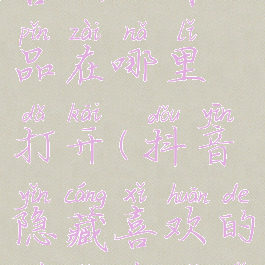 pǐn zài nǎ lǐ
品在哪里
dǎ kāi dǒu yīn
打开(抖音
yǐn cáng xǐ huān de
隐藏喜欢的